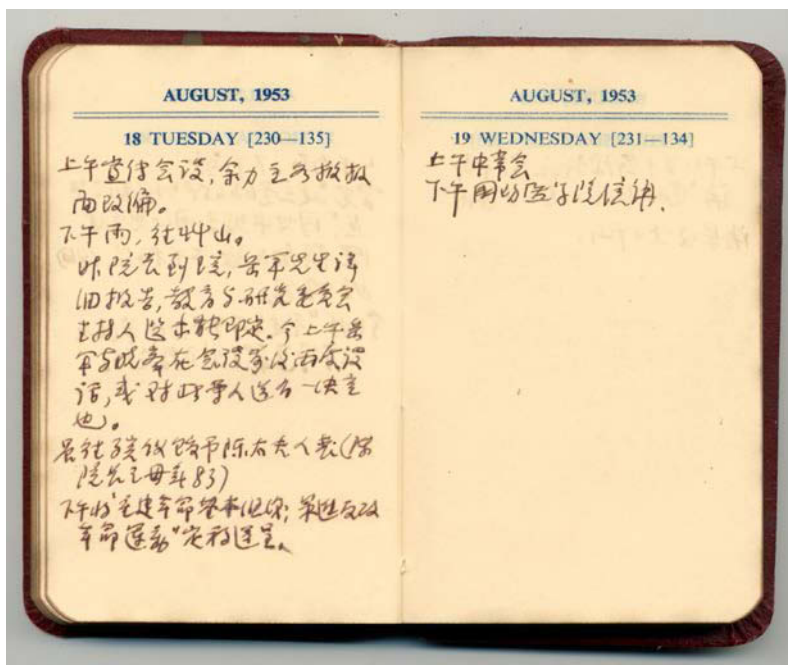 AUGUST, 1953
18 TUESDAY [230—135]
上午宣传会议,余力主各报报
而改编。
下午雨,往草山。
昨院长到院,岳军先生诗
旧报告,教育与研究委员会
主持人选未能即定。今上午岳
军与晓峯在会议前后两度谈
话,或对此事人选有一决定
也。
晨往殡仪馆吊陈太夫人丧(陈
院长之母年83)
下午将重建革命基本组织;策进反攻
革命运动"定稿送呈。
AUGUST, 1953
19 WEDNESDAY [231—134]
上午中常会
下午国防医学院